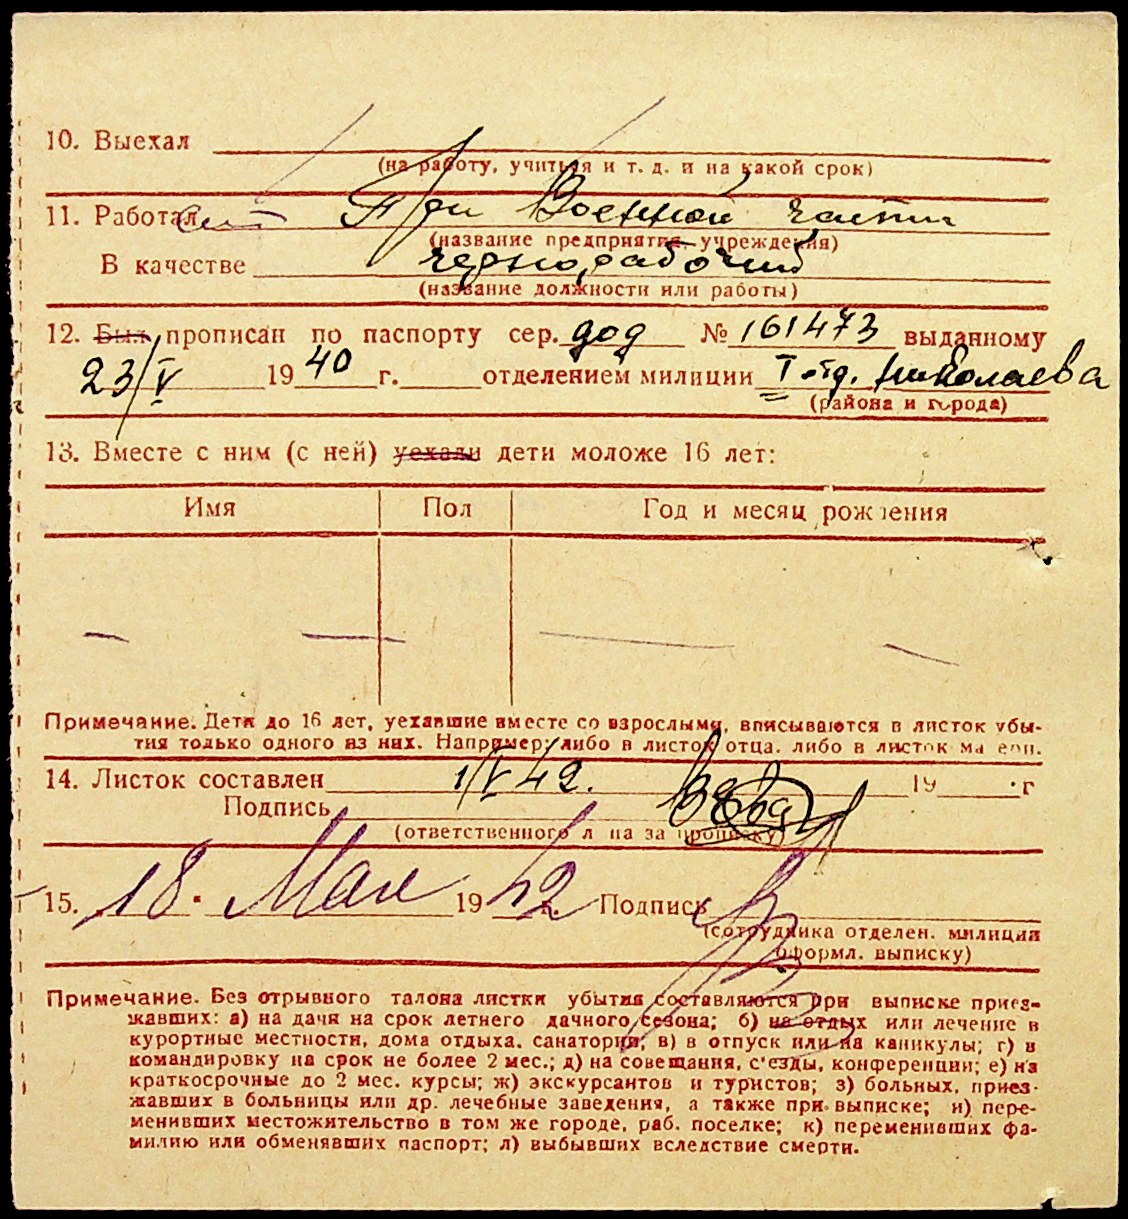 10. Выехал
(на работу, учиться и т. д. и на какой срок)
11. Работает При Военной части
(название предприятия, учреждения)
В качестве чернорабочий
(название должности или работы)
12. Был прописан по паспорту сер. дод № 161473 выданному
23/V 1940 г. отделением милиции I отд. Николаева
(района и города)
13. Вместе с ним (с ней) уехали дети моложе 16 лет:
Имя Пол Год и месяц рождения
Примечание. Дети до 16 лет, уехавшие вместе со взрослыми, вписываются в листок убы-
тия только одного из них. Например: либо в листок отца, либо в листок матери.
14. Листок составлен 1/V 42. 19 г
Подпись
(ответственного лица за прописку)
15. 18 Мая 1942 Подпись
(сотрудника отделен. милиции
оформл. выписку)
Примечание. Без отрывного талона листки убытия составляются при выписке приез-
жавших: а) на дачи на срок летнего дачного сезона; б) на отдых или лечение в
курортные местности, дома отдыха, санатории; в) в отпуск или на каникулы; г) в
командировку на срок не более 2 мес.; д) на совещания, с'езды, конференции; е) на
краткосрочные до 2 мес. курсы; ж) экскурсантов и туристов; з) больных, приез-
жавших в больницы или др. лечебные заведения, а также при выписке; и) пере-
менивших местожительство в том же городе, раб. поселке; к) переменивших фа-
милию или обменявших паспорт; л) выбывших вследствие смерти.